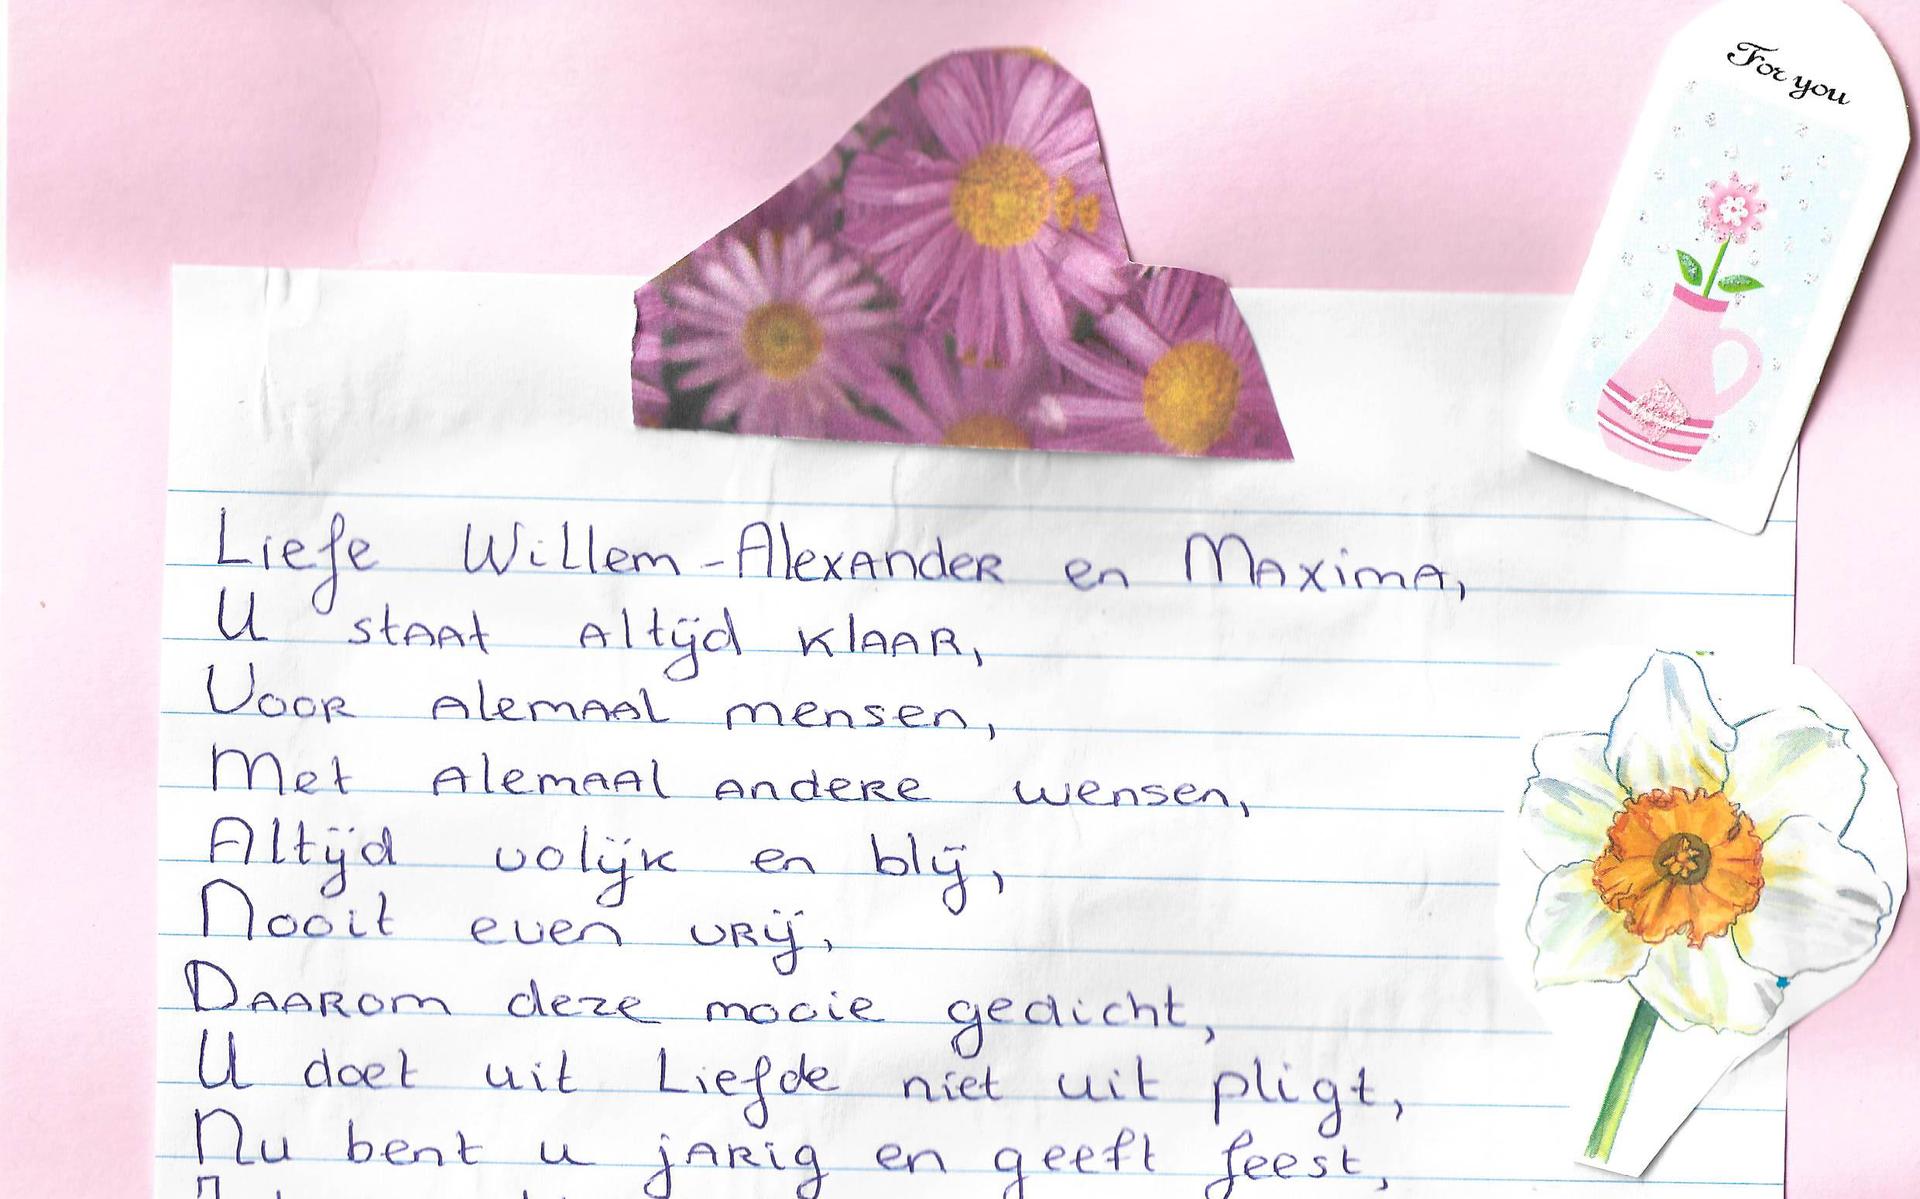 For you
Liefe Willem-Alexander en Maxima,
U staat altijd klaar,
Voor alemaal mensen,
Met alemaal andere wensen,
Altijd volijk en blij,
Nooit even vrij,
Daarom deze mooie gedicht,
U doet uit Liefde niet uit pligt,
Nu bent u jarig en geeft feest,